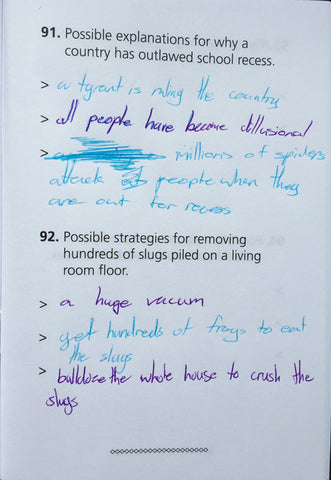 91. Possible explanations for why a
country has outlawed school recess.
> a tyrant is ruling the country
> all people have become dillusional
> millions of spiders
attack people when they
are out for recess
92. Possible strategies for removing
hundreds of slugs piled on a living
room floor.
> a huge vacum
> get hundreds of frogs to eat
the slugs
> bulldoze the whole house to crush the
slugs